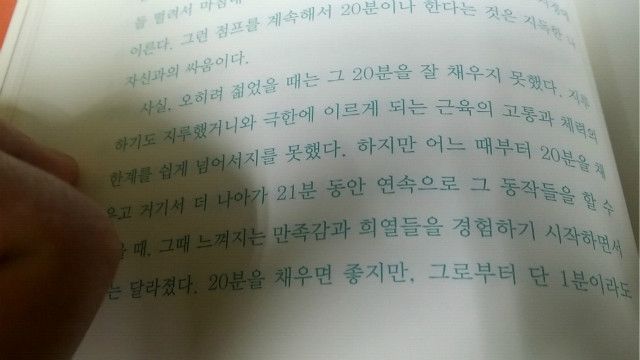 을 벌려서 마침내
이른다. 그런 점프를 계속해서 20분이나 한다는 것은 지독한
자신과의 싸움이다.
사실, 오히려 젊었을 때는 그 20분을 잘 채우지 못했다. 지루
하기도 지루했거니와 극한에 이르게 되는 근육의 고통과 체력의
한계를 쉽게 넘어서지를 못했다. 하지만 어느 때부터 20분을 채
우고 거기서 더 나아가 21분 동안 연속으로 그 동작들을 할 수
때, 그때 느껴지는 만족감과 희열들을 경험하기 시작하면서
는 달라졌다. 20분을 채우면 좋지만, 그로부터 단 1분이라도